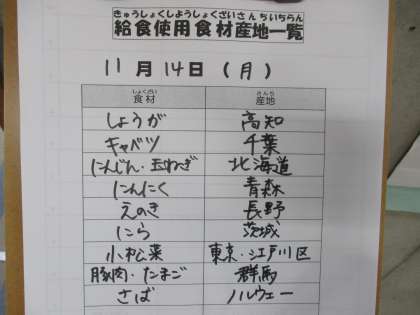 きゅうしょくしようしょくざいさんちいちらん
給食使用食材産地一覧
11月14日(月)
しょくざい さんち
食材 産地
しょうが 高知
キャベツ 千葉
にんじん・玉ねぎ 北海道
にんにく 青森
えのき 長野
にら 茨城
小松菜 東京・江戸川区
豚肉・たまご 群馬
さば ノルウェー